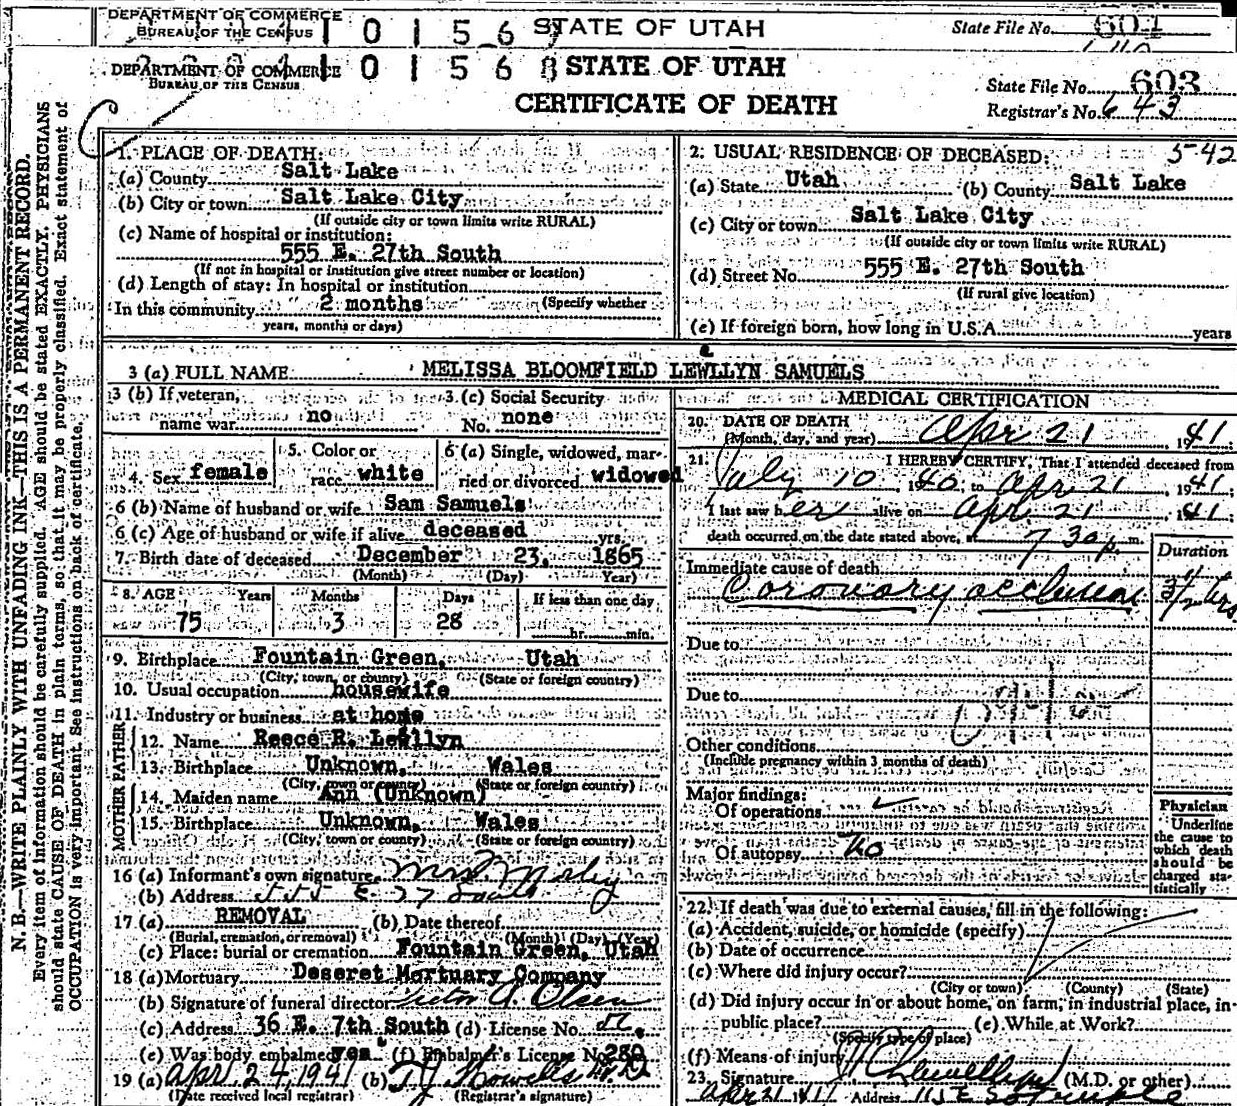 DEPARTMENT OF COMMERCE
BUREAU OF THE CENSUS
STATE OF UTAH
State File No. 604
DEPARTMENT OF COMMERCE
BUREAU OF THE CENSUS
0 1 5 6 8
STATE OF UTAH
CERTIFICATE OF DEATH
State File No. 603
Registrar's No. 643
N. B.—WRITE PLAINLY WITH UNFADING INK—THIS IS A PERMANENT RECORD.
Every item of information should be carefully supplied. AGE should be stated EXACTLY. PHYSICIANS
should state CAUSE OF DEATH in plain terms, so that it may be properly classified. Exact statement of
OCCUPATION is very important. See instructions on back of certificate.
1. PLACE OF DEATH:
(a) County Salt Lake
(b) City or town Salt Lake City
(If outside city or town limits write RURAL)
(c) Name of hospital or institution:
555 E. 27th South
(If not in hospital or institution give street number or location)
(d) Length of stay: In hospital or institution
In this community 2 months (Specify whether
years, months or days)
2. USUAL RESIDENCE OF DECEASED: 5-42
(a) State Utah (b) County Salt Lake
(c) City or town Salt Lake City
(If outside city or town limits write RURAL)
(d) Street No. 555 E. 27th South
(If rural give location)
(e) If foreign born, how long in U.S.A. years
3 (a) FULL NAME MELISSA BLOOMFIELD LEWLLYN SAMUELS
e
3 (b) If veteran,
name war no
3. (c) Social Security
No. none
4. Sex female
5. Color or
race white
6 (a) Single, widowed, mar-
ried or divorced widowed
6 (b) Name of husband or wife Sam Samuels
6 (c) Age of husband or wife if alive deceased yrs.
7. Birth date of deceased December 23, 1865
(Month) (Day) Year)
8. AGE Years Months Days If less than one day
75 3 28 hr. min.
9. Birthplace Fountain Green, Utah
(City, town, or county) (State or foreign country)
10. Usual occupation housewife
11. Industry or business at home
FATHER
12. Name Reece R. Lewllyn
13. Birthplace Unknown, Wales
(City, town or county) (State or foreign country)
MOTHER
14. Maiden name Ann (Unknown)
15. Birthplace Unknown, Wales
(City, town or county) (State or foreign country)
16 (a) Informant's own signature Mrs
(b) Address 555 E. 27 South
17 (a) REMOVAL (b) Date thereof
(Burial, cremation, or removal) (Month) (Day) (Year)
(c) Place: burial or cremation Fountain Green, Utah
18 (a) Mortuary Deseret Mortuary Company
(b) Signature of funeral director Victor A. Olsen
(c) Address 36 E. 7th South (d) License No.
(e) Was body embalmed yes (f) Embalmer's License No. 280
19 (a) Apr. 24, 1941 (b)
(Date received local registrar) (Registrar's signature)
MEDICAL CERTIFICATION
20. DATE OF DEATH
(Month, day, and year) Apr 21, 1941
21. I HEREBY CERTIFY, That I attended deceased from
July 10 1940, to Apr 21, 1941;
I last saw her alive on Apr 21, 1941;
death occurred on the date stated above, a 7 30 p. m.
Duration
Immediate cause of death
Coronary occlusion 3 1/2 hrs.
Due to
Due to
Other conditions
(Include pregnancy within 3 months of death)
Major findings:
Of operations
Of autopsy no
Physician
Underline
the cause to
which death
should be
charged sta-
tistically
22. If death was due to external causes, fill in the following:
(a) Accident, suicide, or homicide (specify)
(b) Date of occurrence
(c) Where did injury occur?
(City or town) (County) (State)
(d) Did injury occur in or about home, on farm, in industrial place, in
public place? (e) While at Work?
(Specify type of place)
(f) Means of injury
23. Signature (M.D. or other)
Apr 21 1941 Address